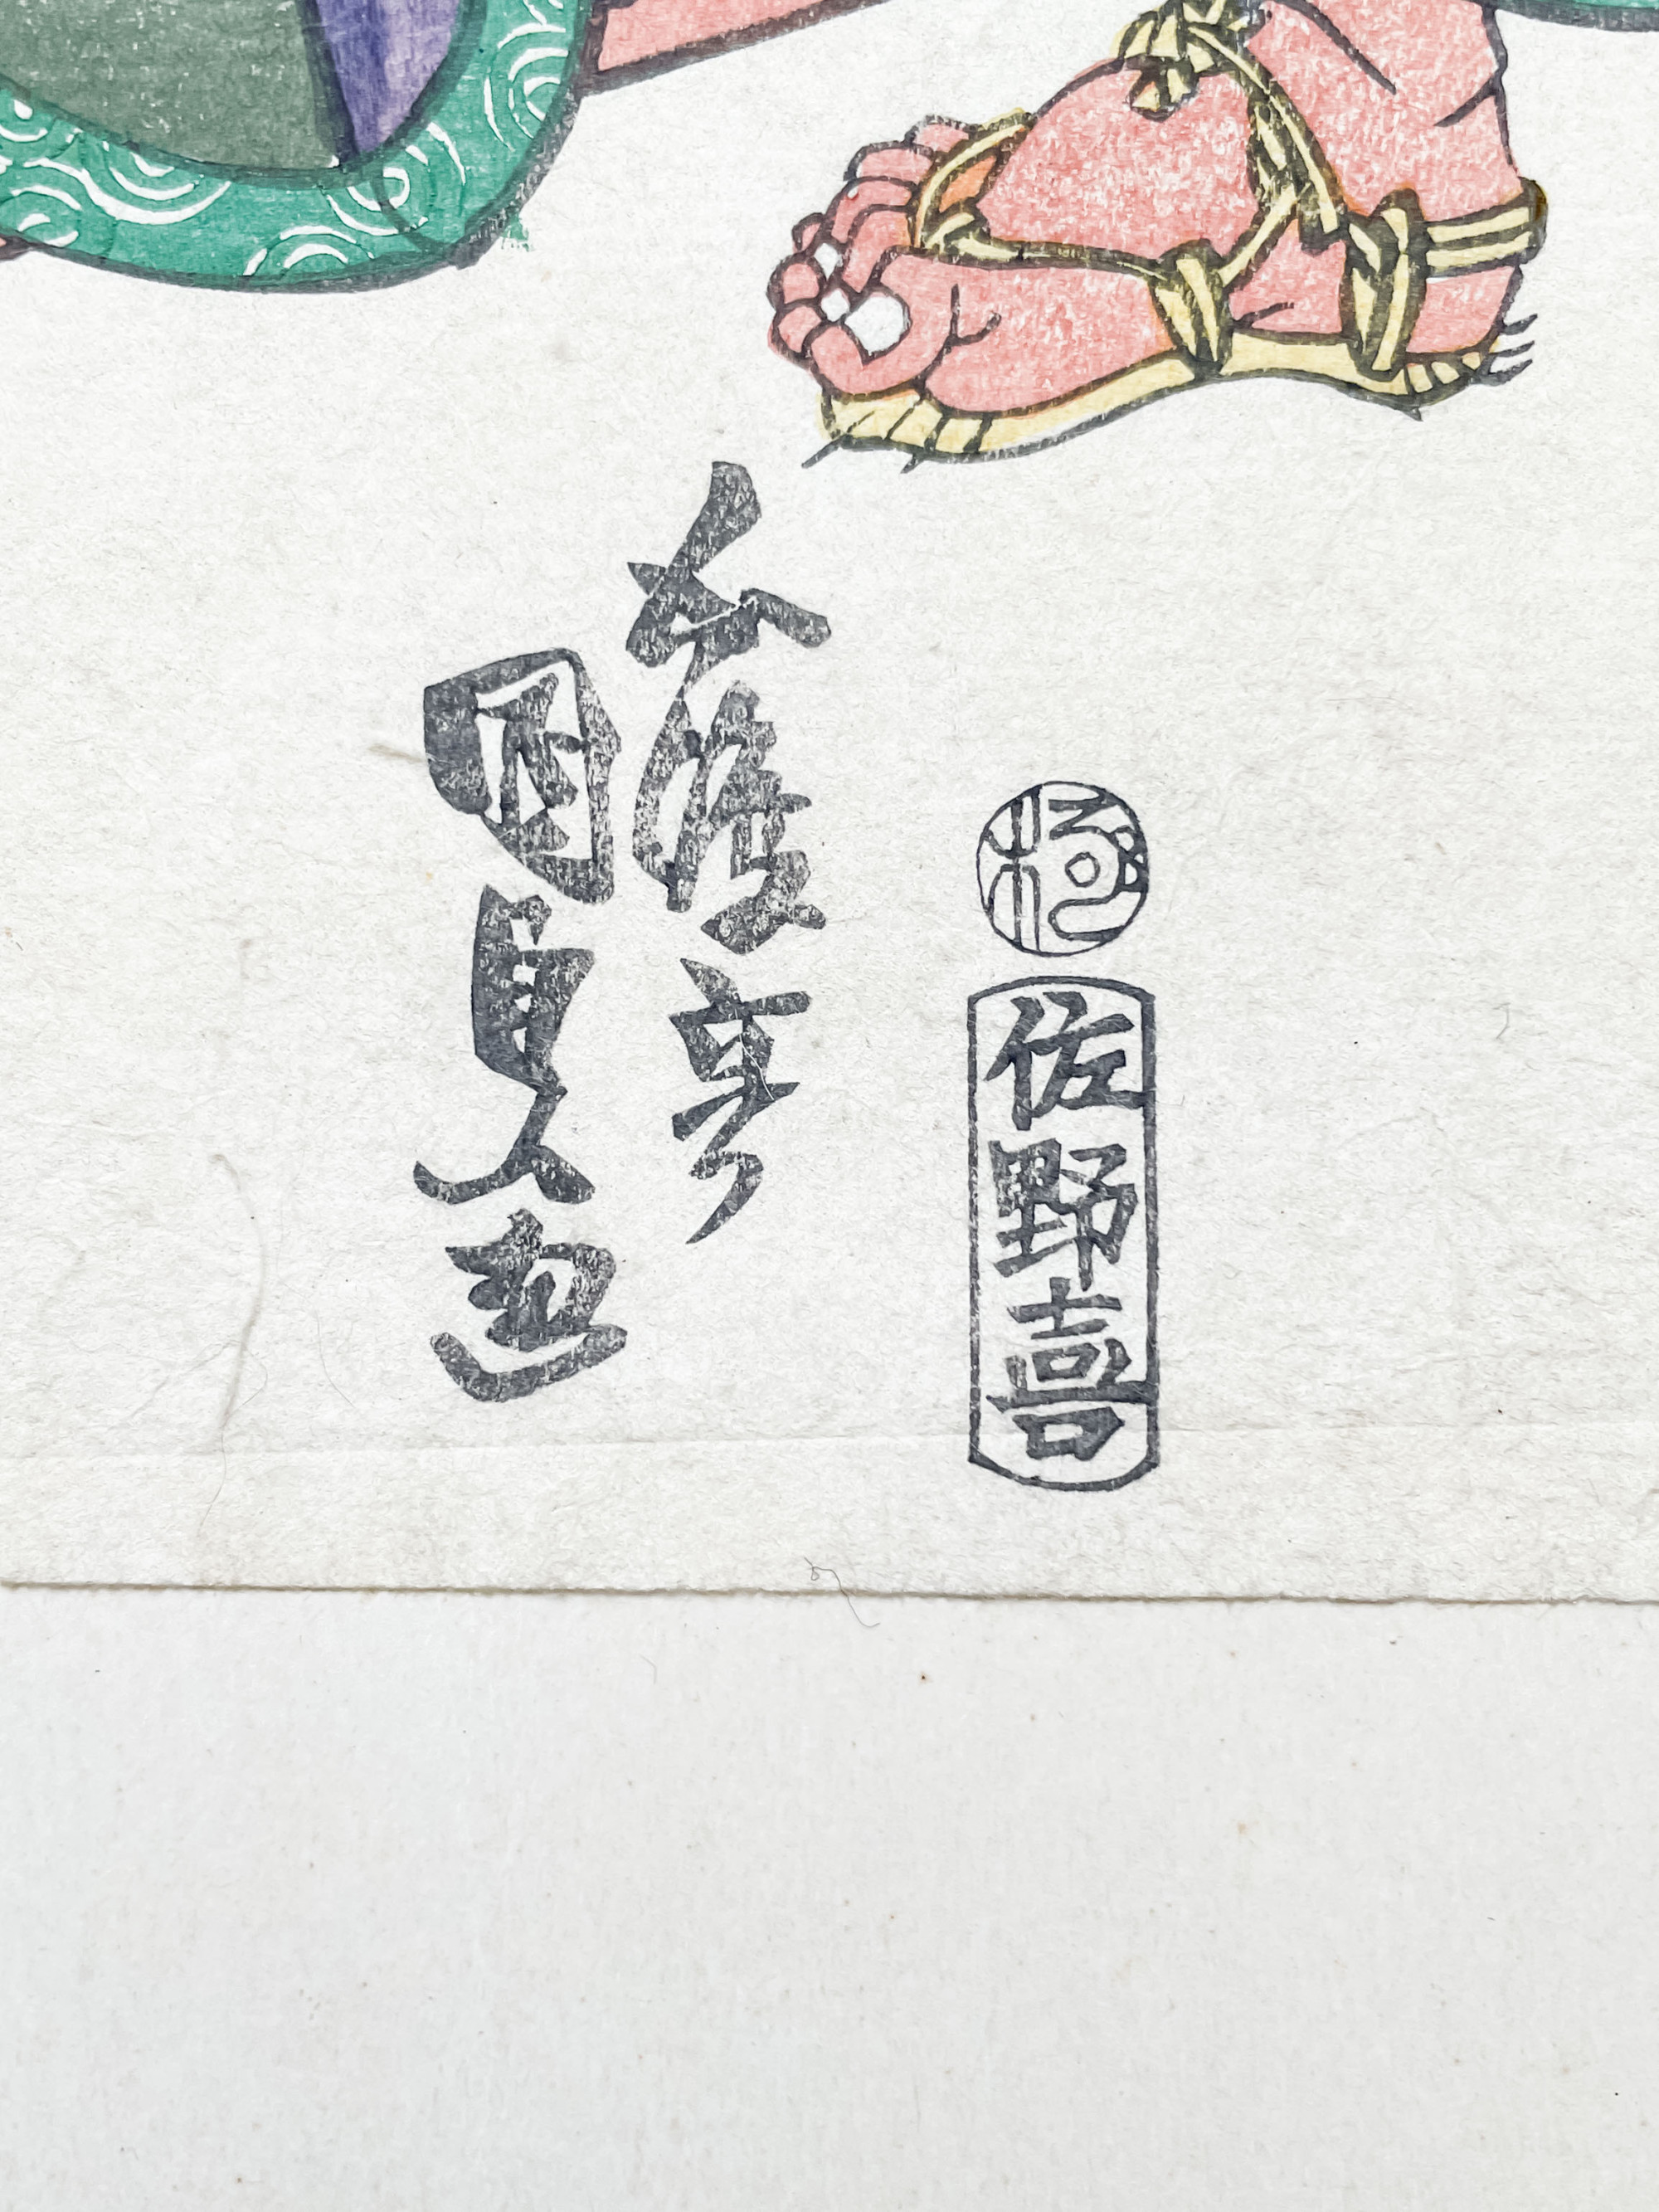 極
佐野喜
五渡亭
國貞画